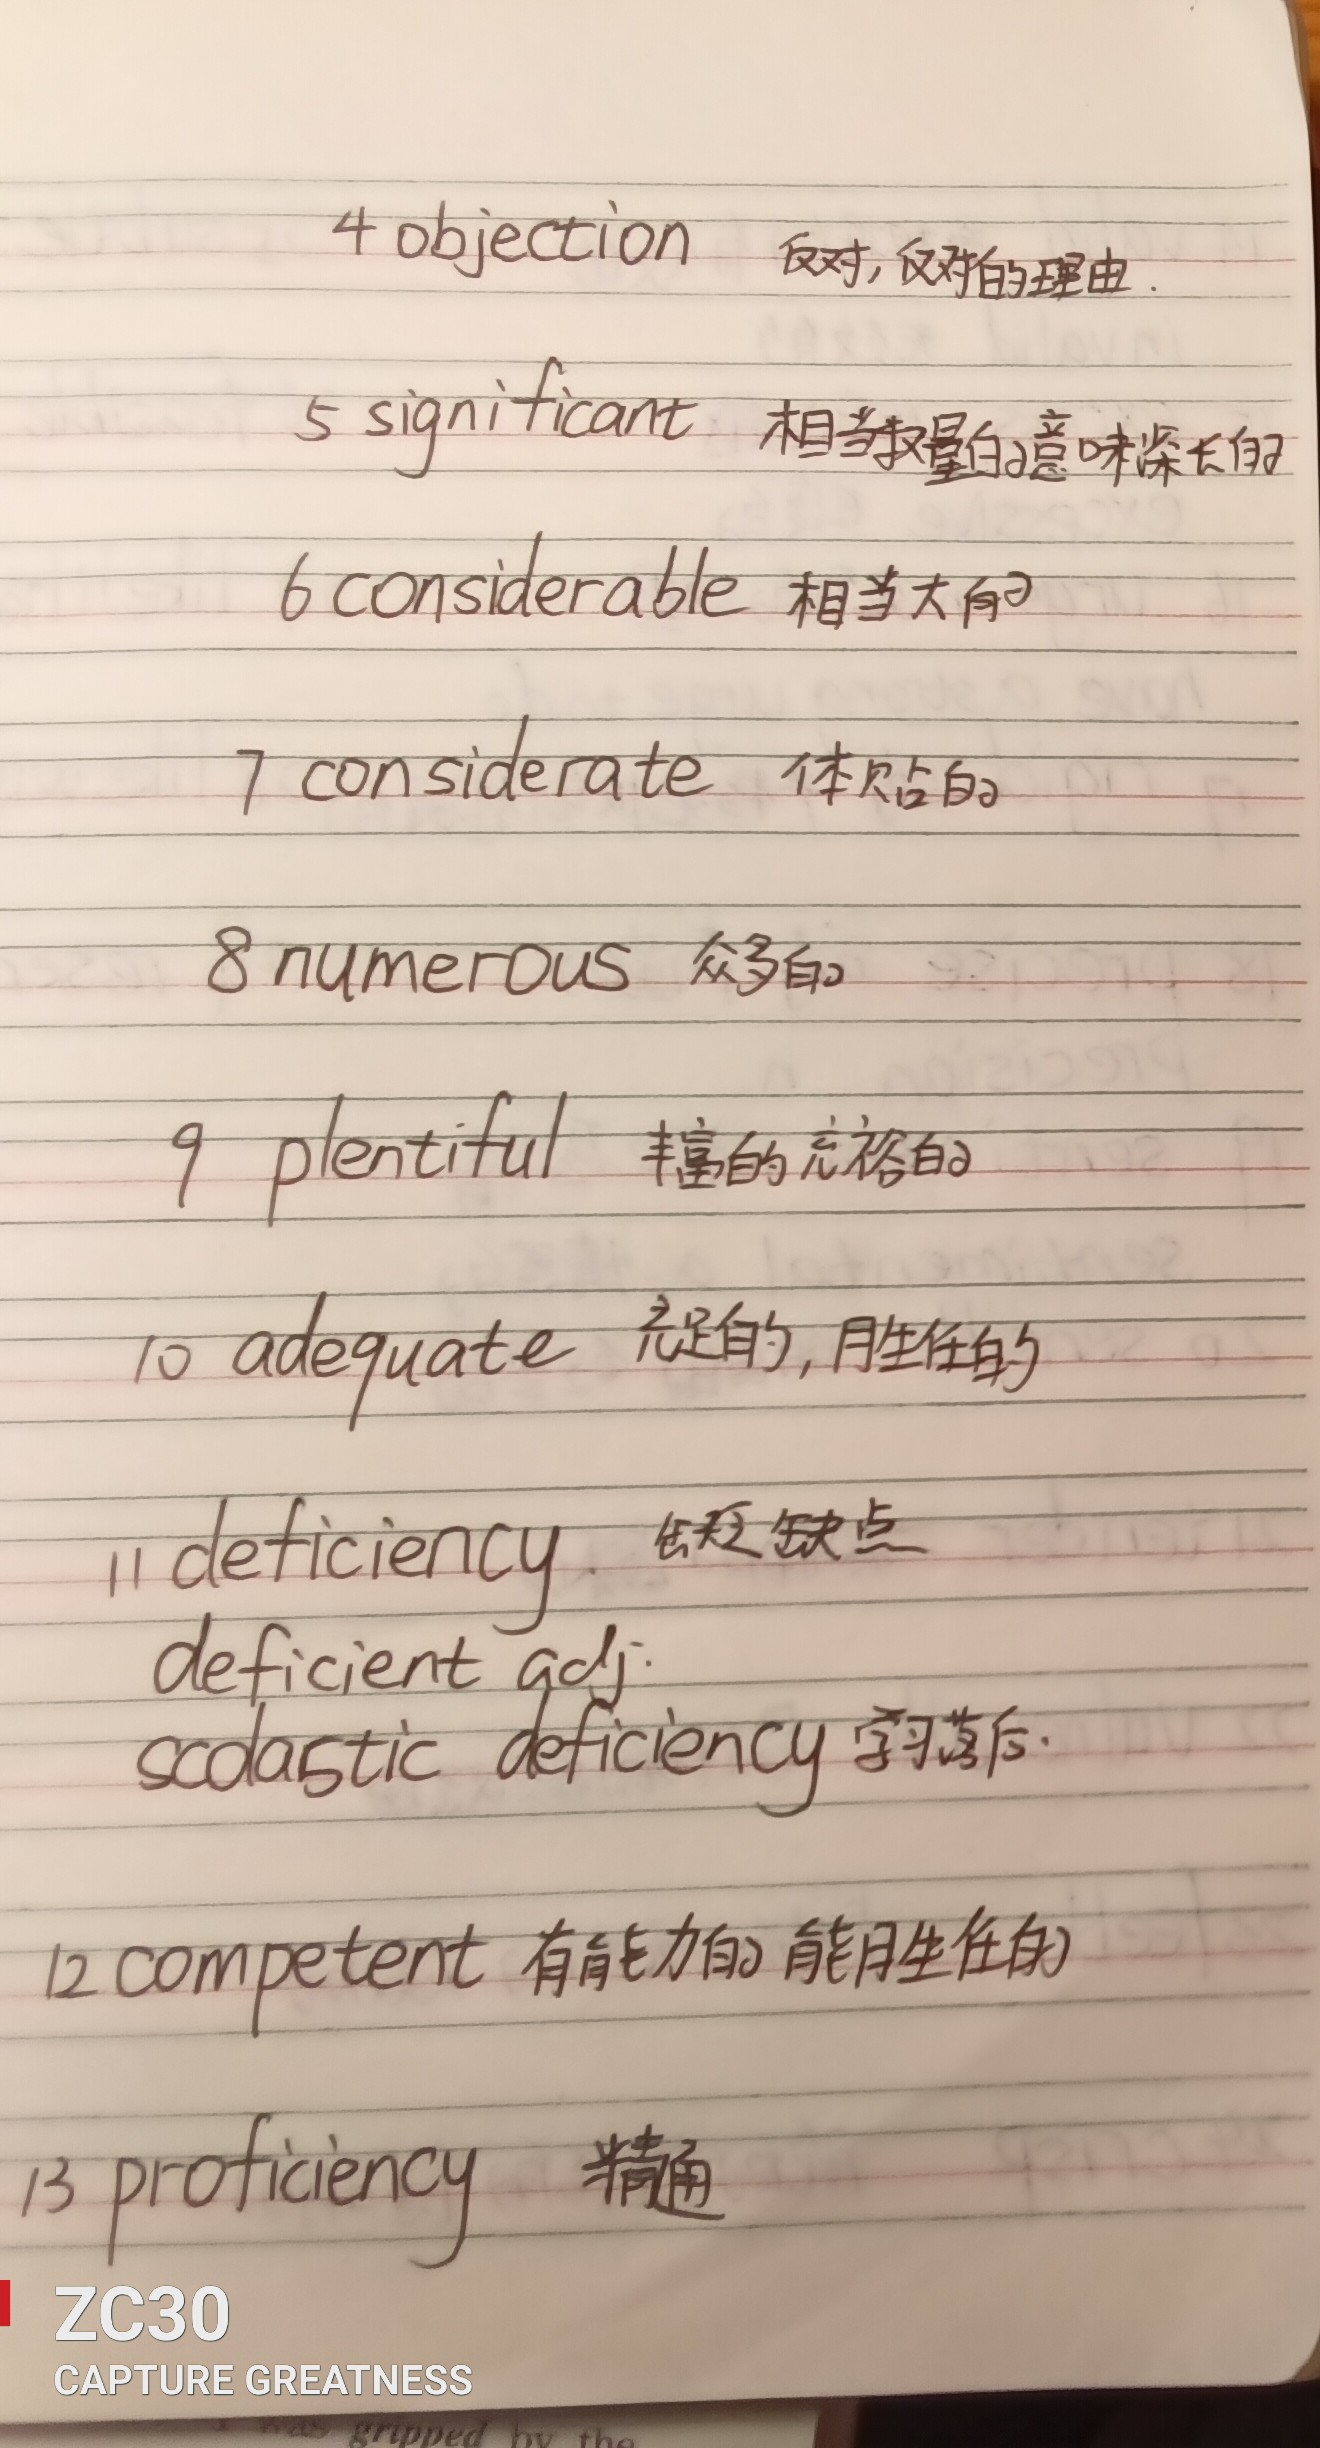 4 objection 反对，反对的理由.
5 significant 相当数量的意味深长的
6 considerable 相当大的
7 considerate 体贴的
8 numerous 众多的
9 plentiful 丰富的 充裕的
10 adequate 充足的，胜任的
11 deficiency. 缺乏 缺点
deficient adj.
scolastic deficiency 学习落后.
12 competent 有能力的 能胜任的
13 proficiency 精通
ZC30
CAPTURE GREATNESS
was gripped by the